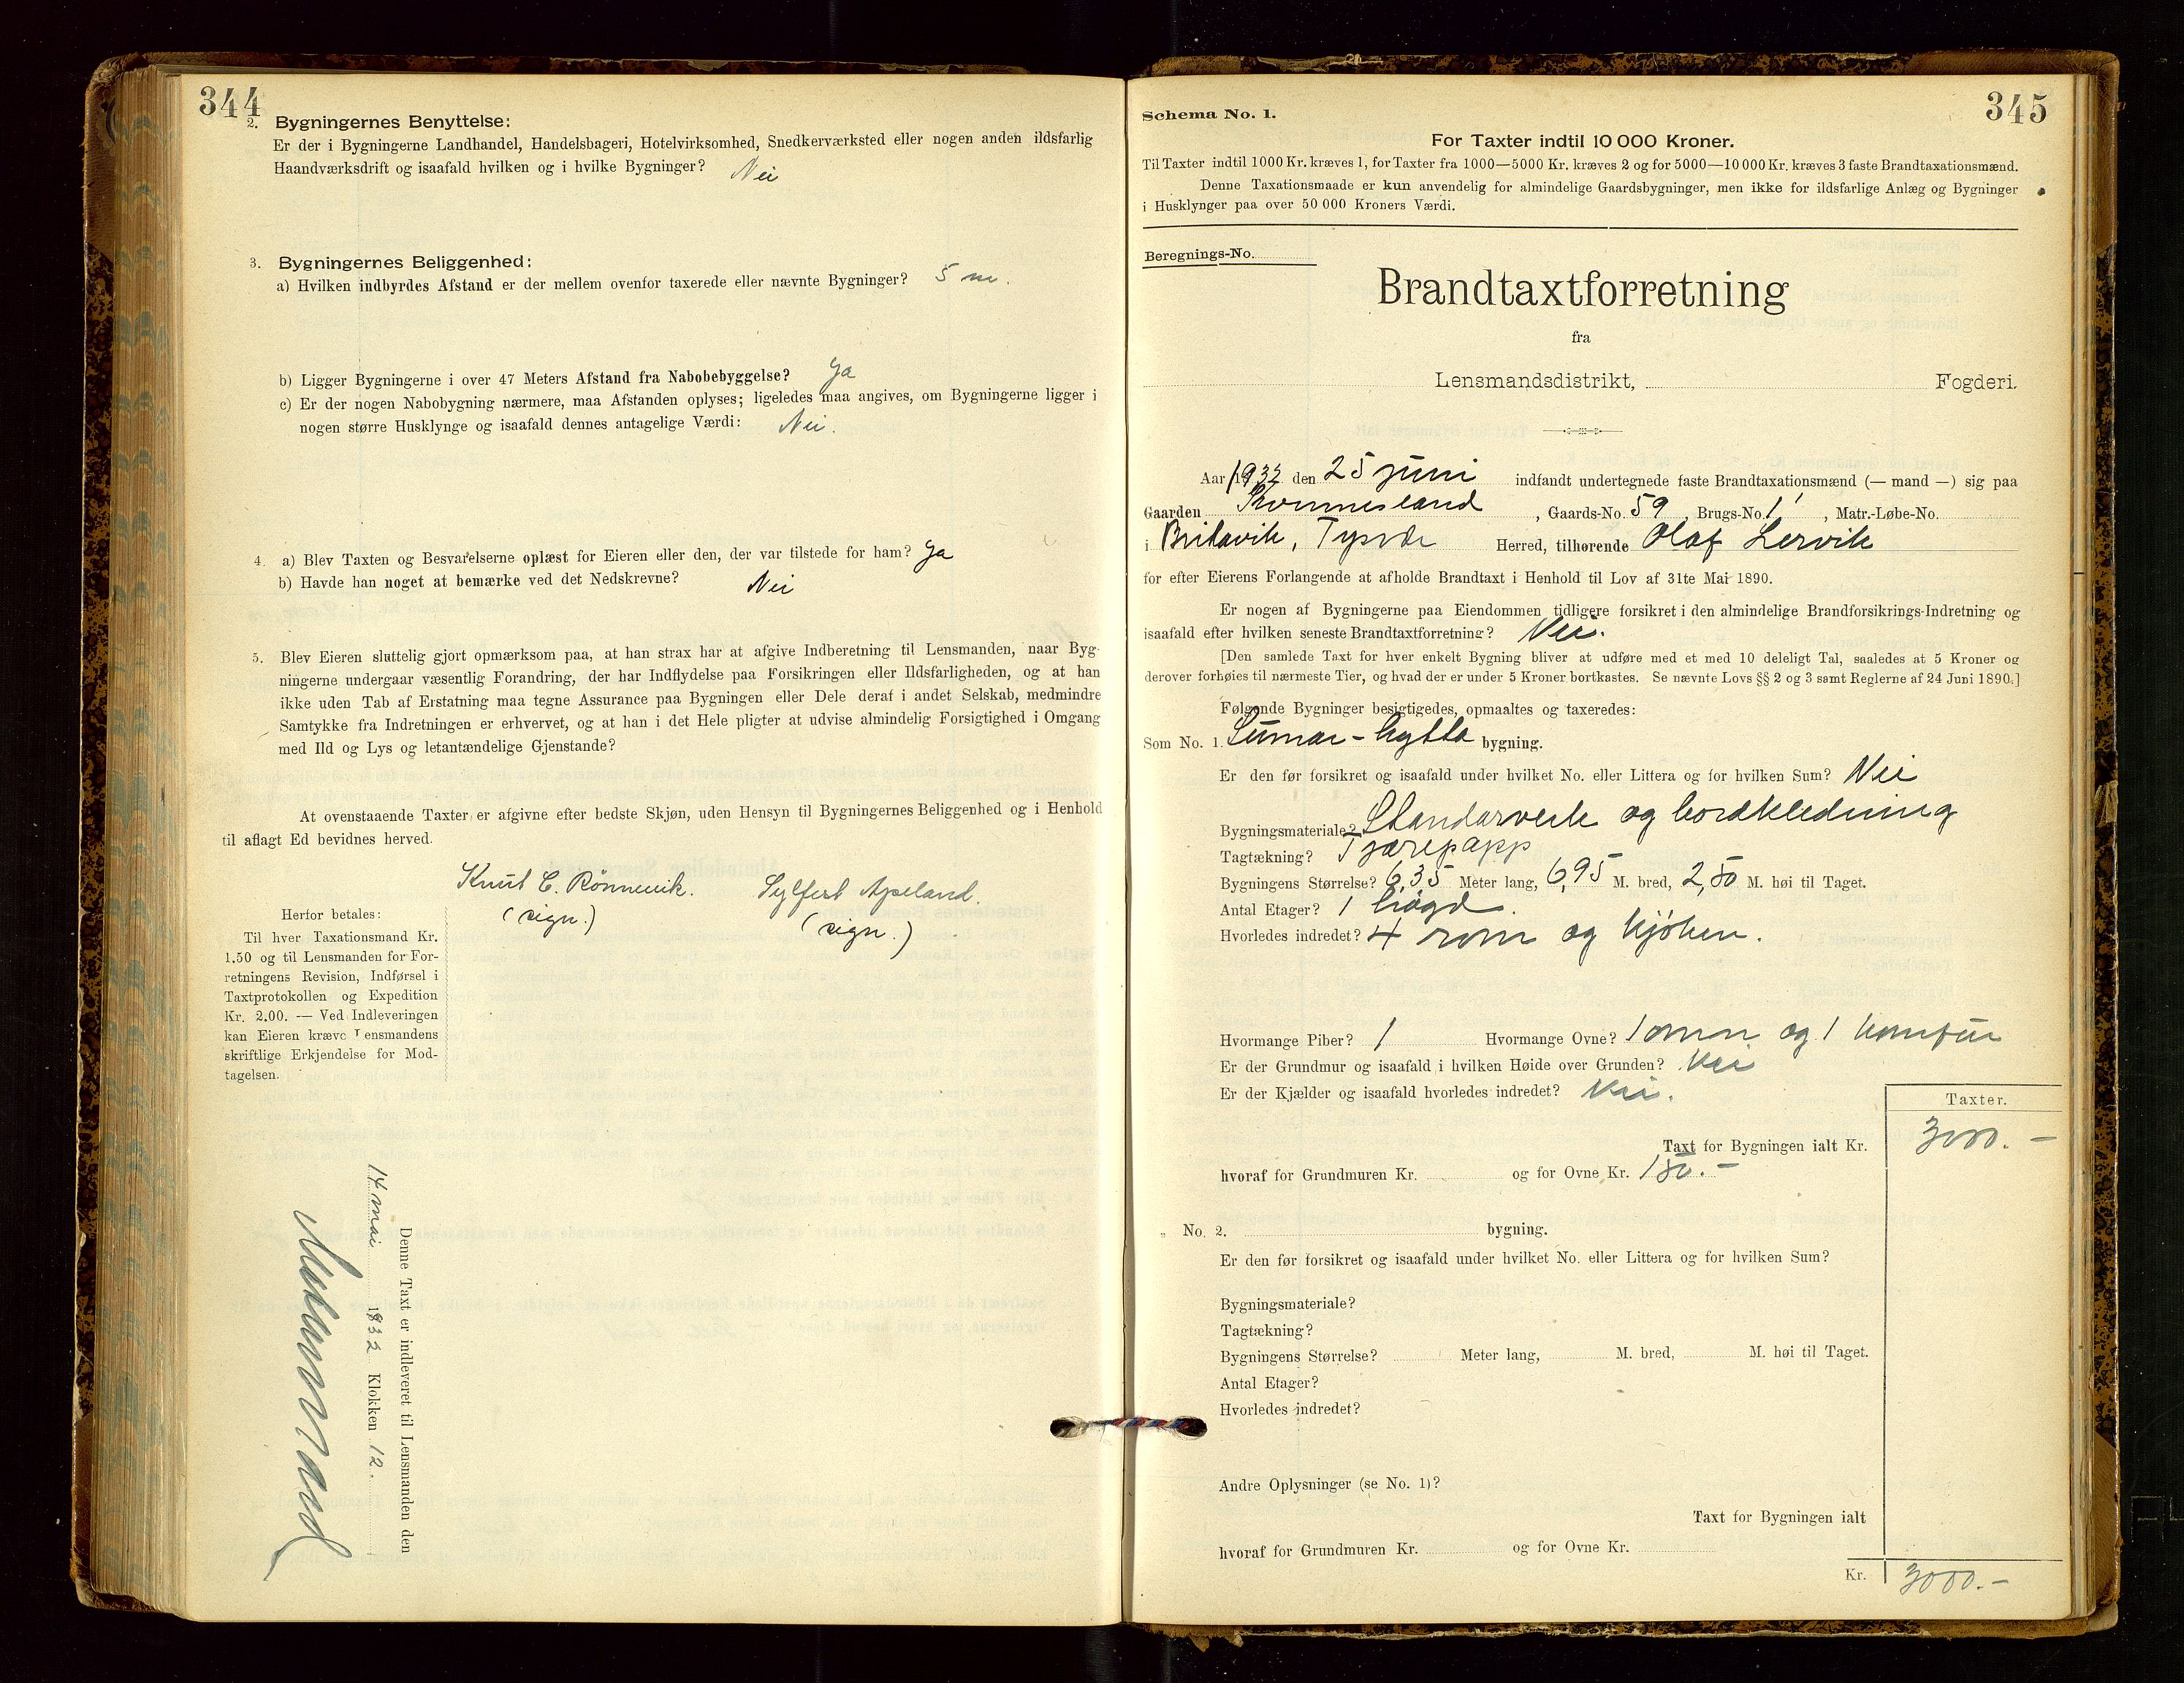 344
2. Bygningernes Benyttelse:
Er der i Bygningerne Landhandel, Handelsbageri, Hotelvirksomhed, Snedkerværksted eller nogen anden ildsfarlig
Haandværksdrift og isaafald hvilken og i hvilke Bygninger? Nei
3. Bygningernes Beliggenhed:
a) Hvilken indbyrdes Afstand er der mellem ovenfor taxerede eller nævnte Bygninger? 5 m.
b) Ligger Bygningerne i over 47 Meters Afstand fra Nabobebyggelse? Ja
c) Er der nogen Nabobygning nærmere, maa Afstanden oplyses; ligeledes maa angives, om Bygningerne ligger i
nogen større Husklynge og isaafald dennes antagelige Værdi: Nei.
4. a) Blev Taxten og Besvarelserne oplæst for Eieren eller den, der var tilstede for ham? Ja
b) Havde han noget at bemærke ved det Nedskrevne? Nei
5. Blev Eieren sluttelig gjort opmærksom paa, at han strax har at afgive Indberetning til Lensmanden, naar Byg-
ningerne undergaar væsentlig Forandring, der har Indflydelse paa Forsikringen eller Ildsfarligheden, og at han
ikke uden Tab af Erstatning maa tegne Assurance paa Bygningen eller Dele deraf i andet Selskab, medmindre
Samtykke fra Indretningen er erhvervet, og at han i det Hele pligter at udvise almindelig Forsigtighed i Omgang
med Ild og Lys og letantændelige Gjenstande?
At ovenstaaende Taxter er afgivne efter bedste Skjøn, uden Hensyn til Bygningernes Beliggenhed og i Henhold
til aflagt Ed bevidnes herved.
Knut C. Rönnevik. Sylfest Apeland.
(sign.) (sign.)
Herfor betales:
Til hver Taxationsmand Kr.
1.50 og til Lensmanden for For-
retningens Revision, Indførsel i
Taxtprotokollen og Expedition
Kr. 2.00. — Ved Indleveringen
kan Eieren kræve Lensmandens
skriftlige Erkjendelse for Mod-
tagelsen.
Denne Taxt er indleveret til Lensmanden den
14 mai 1932 Klokken 12.
345
Schema No. 1.
For Taxter indtil 10 000 Kroner.
Til Taxter indtil 1000 Kr. kræves 1, for Taxter fra 1000—5000 Kr. kræves 2 og for 5000—10 000 Kr. kræves 3 faste Brandtaxationsmænd.
Denne Taxationsmaade er kun anvendelig for almindelige Gaardsbygninger, men ikke for ildsfarlige Anlæg og Bygninger
i Husklynger paa over 50 000 Kroners Værdi.
Beregnings-No.
Brandtaxtforretning
fra
Lensmandsdistrikt, Fogderi.
Aar 1932 den 25 juni indfandt undertegnede faste Brandtaxationsmænd (— mand —) sig paa
Gaarden , Gaards-No. 59 , Brugs-No. 1 , Matr.-Løbe-No.
i Herred, tilhørende Olaf Lervik
for efter Eierens Forlangende at afholde Brandtaxt i Henhold til Lov af 31te Mai 1890.
Er nogen af Bygningerne paa Eiendommen tidligere forsikret i den almindelige Brandforsikrings-Indretning og
isaafald efter hvilken seneste Brandtaxtforretning? Nei.
[Den samlede Taxt for hver enkelt Bygning bliver at udføre med et med 10 deleligt Tal, saaledes at 5 Kroner og
derover forhøies til nærmeste Tier, og hvad der er under 5 Kroner bortkastes. Se nævnte Lovs §§ 2 og 3 samt Reglerne af 24 Juni 1890.]
Følgende Bygninger besigtigedes, opmaaltes og taxeredes:
Som No. 1. Sumar-hytta bygning.
Er den før forsikret og isaafald under hvilket No. eller Littera og for hvilken Sum? Nei
Bygningsmateriale? Standarverk og bordkledning
Tagtækning? Tjærepapp
Bygningens Størrelse? 6,35 Meter lang, 6,95 M. bred, 2,50 M. høi til Taget.
Antal Etager? 1 høgd.
Hvorledes indredet? 4 rom og kjöken.
Hvormange Piber? 1 Hvormange Ovne? 1 omn og 1 komfur
Er der Grundmur og isaafald i hvilken Høide over Grunden? Nei
Er der Kjælder og isaafald hvorledes indredet? Nei.
Taxter.
Taxt for Bygningen ialt Kr. 3000.—
hvoraf for Grundmuren Kr. og for Ovne Kr. 150.—
„ No. 2. bygning.
Er den før forsikret og isaafald under hvilket No. eller Littera og for hvilken Sum?
Bygningsmateriale?
Tagtækning?
Bygningens Størrelse? Meter lang, M. bred, M. høi til Taget.
Antal Etager?
Hvorledes indredet?
Andre Oplysninger (se No. 1)?
Taxt for Bygningen ialt
hvoraf for Grundmuren Kr. og for Ovne Kr.
Kr. 3000.—